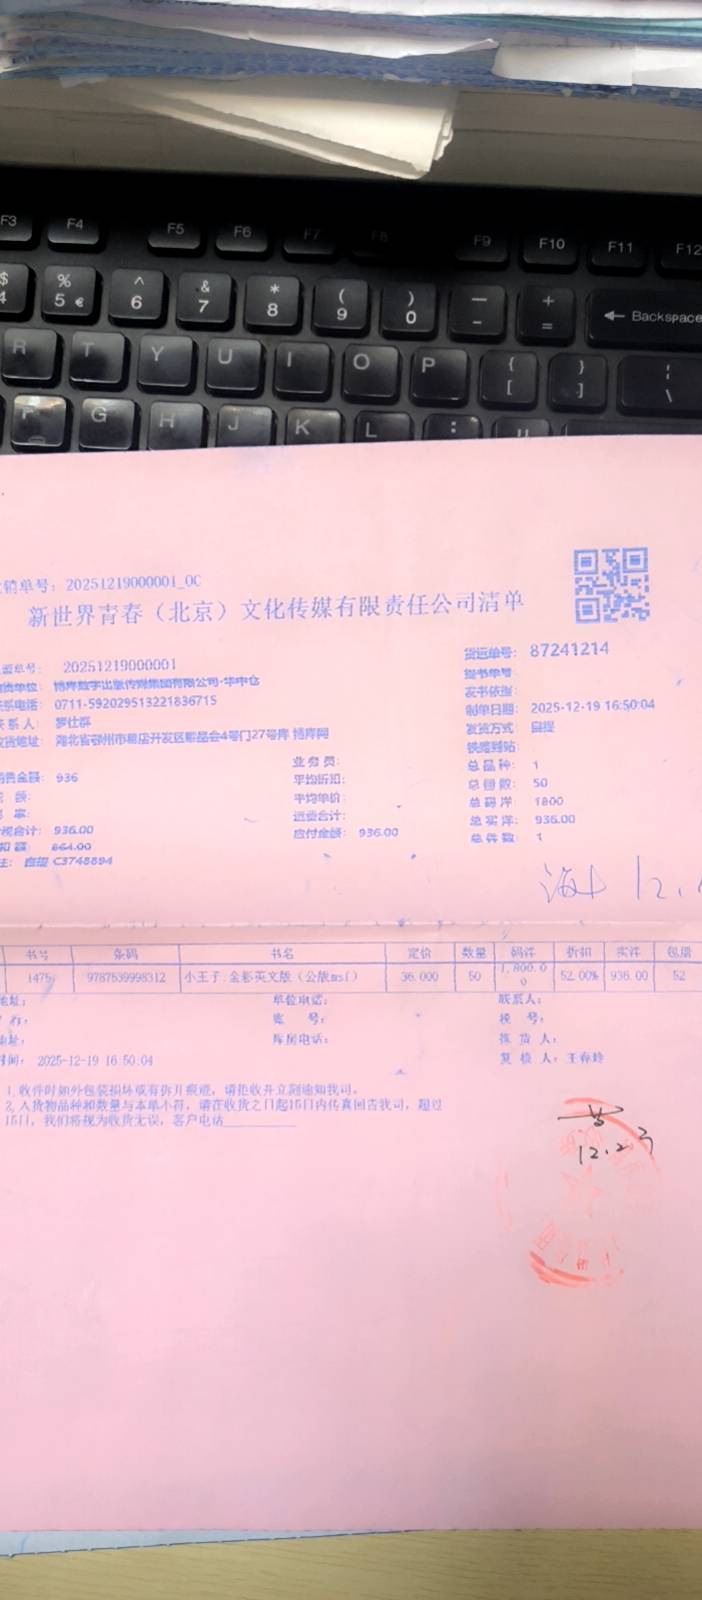 F3 F4 F5 F6 F7 F8 F9 F10 F11 F12
$ 4 % 5 € ^ 6 & 7 * 8 ( 9 ) 0 — - + = ← Backspace
R T Y U I O P { [ } ] ¦ \
F G H J K L :
销单号: 20251219000001_0C
新世界青春（北京）文化传媒有限责任公司清单
单号: 20251219000001
货运单号: 87241214
单位: 博库数字出版传媒集团有限公司-华中仓
提书单号:
系电话: 0711-592029513221836715
发书依据:
系人: 罗仕群
制单日期: 2025-12-19 16:50:04
货地址: 湖北省鄂州市葛店开发区 4号门27号库 博库网
发货方式: 自提
铁路到站:
业务员:
总品种: 1
金额: 936
平均折扣:
总册数: 50
额:
平均单价:
总码洋: 1800
率:
运费合计:
总实洋: 936.00
税合计: 936.00
应付金额: 936.00
总件数: 1
扣额: 864.00
注: 自提 C3748894
12.
书号 条码 书名 定价 数量 码洋 折扣 实洋 包册
1475 9787539998312 小王子:全彩英文版（公版msf） 36.000 50 1,800.00 52.00% 936.00 52
地址: 单位电话: 联系人:
账 号: 税 号:
地址: 库房电话: 拣 货 人:
时间: 2025-12-19 16:50:04 复 核 人: 王春玲
1.收件时如外包装损坏或有拆开痕迹，请拒收并立刻通知我司。
2.人货物品种和数量与本单不符，请在收货之日起15日内传真回告我司，超过
15日，我们将视为收货无误，客户电话
12.23